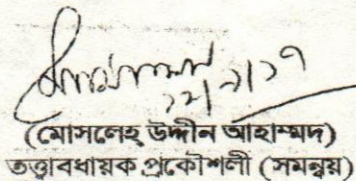 ১২/১/১৭
(মোসলেহ্ উদ্দীন আহাম্মদ)
তত্ত্বাবধায়ক প্রকৌশলী (সমন্বয়)